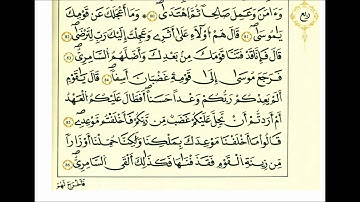 وَءَامَنَ وَعَمِلَ صَٰلِحًا ثُمَّ ٱهْتَدَىٰ ۝ وَمَآ أَعْجَلَكَ عَن قَوْمِكَ
يَٰمُوسَىٰ ۝ قَالَ هُمْ أُو۟لَآءِ عَلَىٰٓ أَثَرِى وَعَجِلْتُ إِلَيْكَ رَبِّ لِتَرْضَىٰ ۝
قَالَ فَإِنَّا قَدْ فَتَنَّا قَوْمَكَ مِنۢ بَعْدِكَ وَأَضَلَّهُمُ ٱلسَّامِرِىُّ ۝
فَرَجَعَ مُوسَىٰٓ إِلَىٰ قَوْمِهِۦ غَضْبَٰنَ أَسِفًا قَالَ يَٰقَوْمِ
أَلَمْ يَعِدْكُمْ رَبُّكُمْ وَعْدًا حَسَنًا أَفَطَالَ عَلَيْكُمُ ٱلْعَهْدُ
أَمْ أَرَدتُّمْ أَن يَحِلَّ عَلَيْكُمْ غَضَبٌ مِّن رَّبِّكُمْ فَأَخْلَفْتُم مَّوْعِدِى ۝
قَالُوا۟ مَآ أَخْلَفْنَا مَوْعِدَكَ بِمَلْكِنَا وَلَٰكِنَّا حُمِّلْنَآ أَوْزَارًا
مِّن زِينَةِ ٱلْقَوْمِ فَقَذَفْنَٰهَا فَكَذَٰلِكَ أَلْقَى ٱلسَّامِرِىُّ ۝
فَأَخْرَجَ لَهُمْ